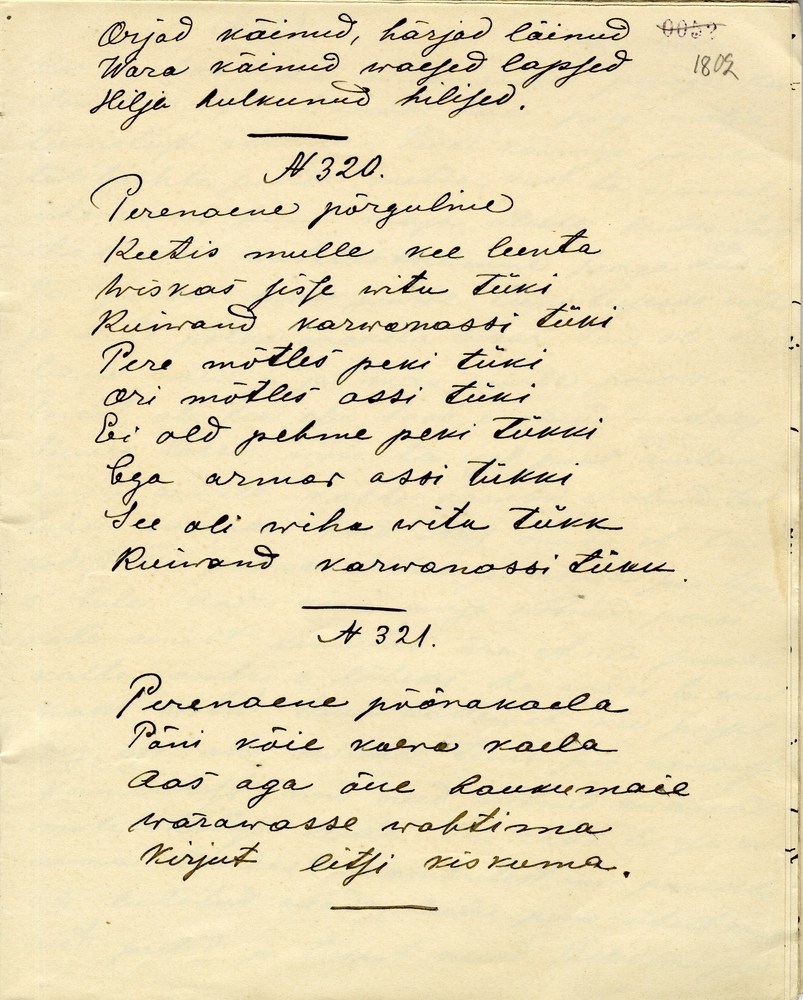 Orjad käinud, härjad läinud
1802
Wara käinud waesed lapsed
Hilja hulkunud hilised.
N 320.
Perenaene põrguline
Keetis mulle kee leenta
Wiskas sisse witu tüki
Ruiwand karwanassi tüki
Pere mõtles peki tüki
Ori mõtles assi tüki
Ei old pehme peki tükki
Ega armas assi tükki
See oli wiha witu tükk
Ruiwand karwanassi tükk.
N 321.
Perenaene põõrakaela
Pani kõie kaera kaela
Aas aga õue haukumaie
wärawasse wahtima
Kirjut litsi kiskuma.